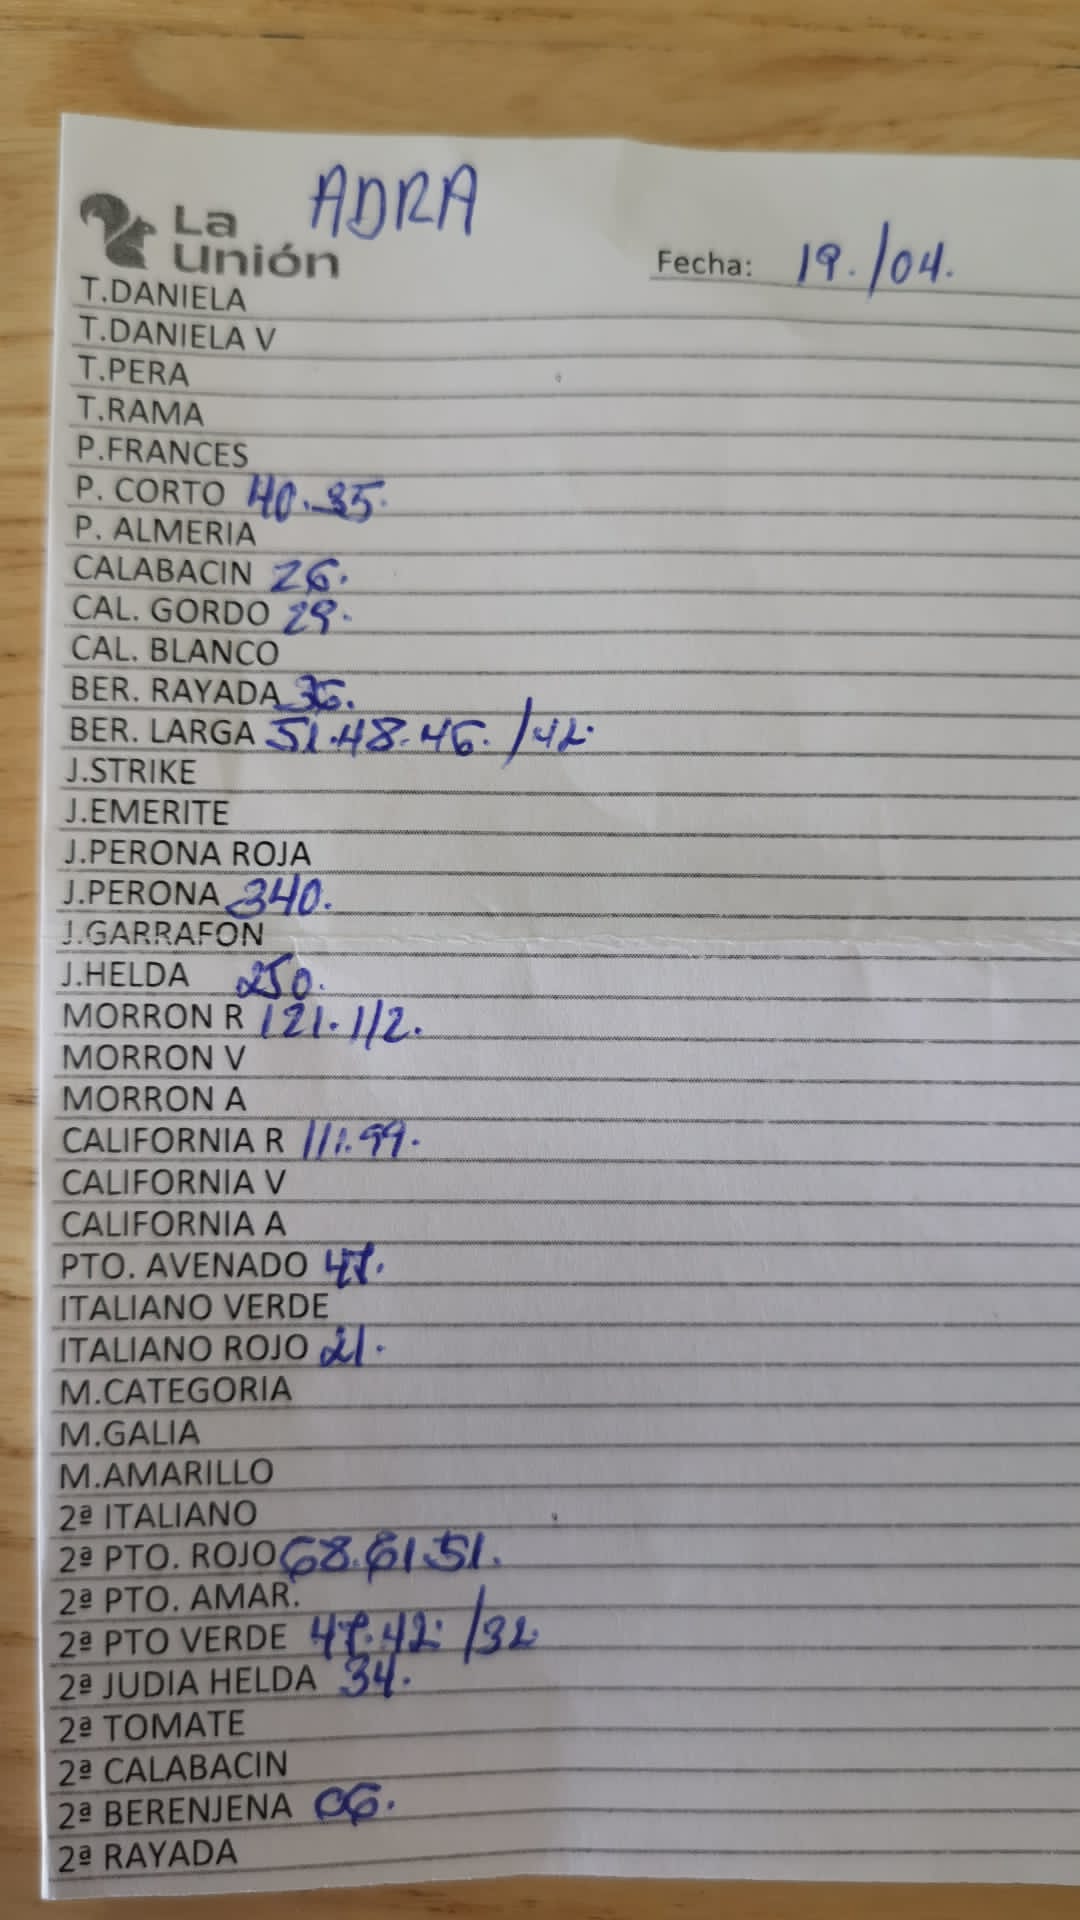 ADRA
La
Unión
Fecha: 19./04.
T.DANIELA
T.DANIELA V
T.PERA
T.RAMA
P.FRANCES
P. CORTO 40.35.
P. ALMERIA
CALABACIN 26.
CAL. GORDO 29.
CAL. BLANCO
BER. RAYADA 36.
BER. LARGA 51.48.46./42.
J.STRIKE
J.EMERITE
J.PERONA ROJA
J.PERONA 340.
J.GARRAFON
J.HELDA 250.
MORRON R 121.112.
MORRON V
MORRON A
CALIFORNIA R 111.99.
CALIFORNIA V
CALIFORNIA A
PTO. AVENADO 47.
ITALIANO VERDE
ITALIANO ROJO 21.
M.CATEGORIA
M.GALIA
M.AMARILLO
2ª ITALIANO
2ª PTO. ROJO 68.61.51.
2ª PTO. AMAR.
2ª PTO VERDE 47.42./32.
2ª JUDIA HELDA 34.
2ª TOMATE
2ª CALABACIN
2ª BERENJENA 06.
2ª RAYADA